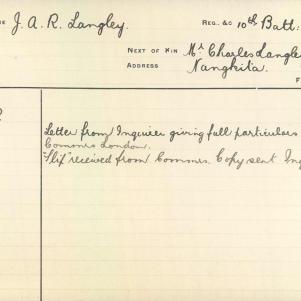 J. A. R. Langley. REG. &C 10th Batt:
NEXT OF KIN Mr Charles Langle
ADDRESS Nangkita.
Letter from Inquirer giving full particulars
Commrs London.
"Slip" received from Commrs. Copy sent Inq